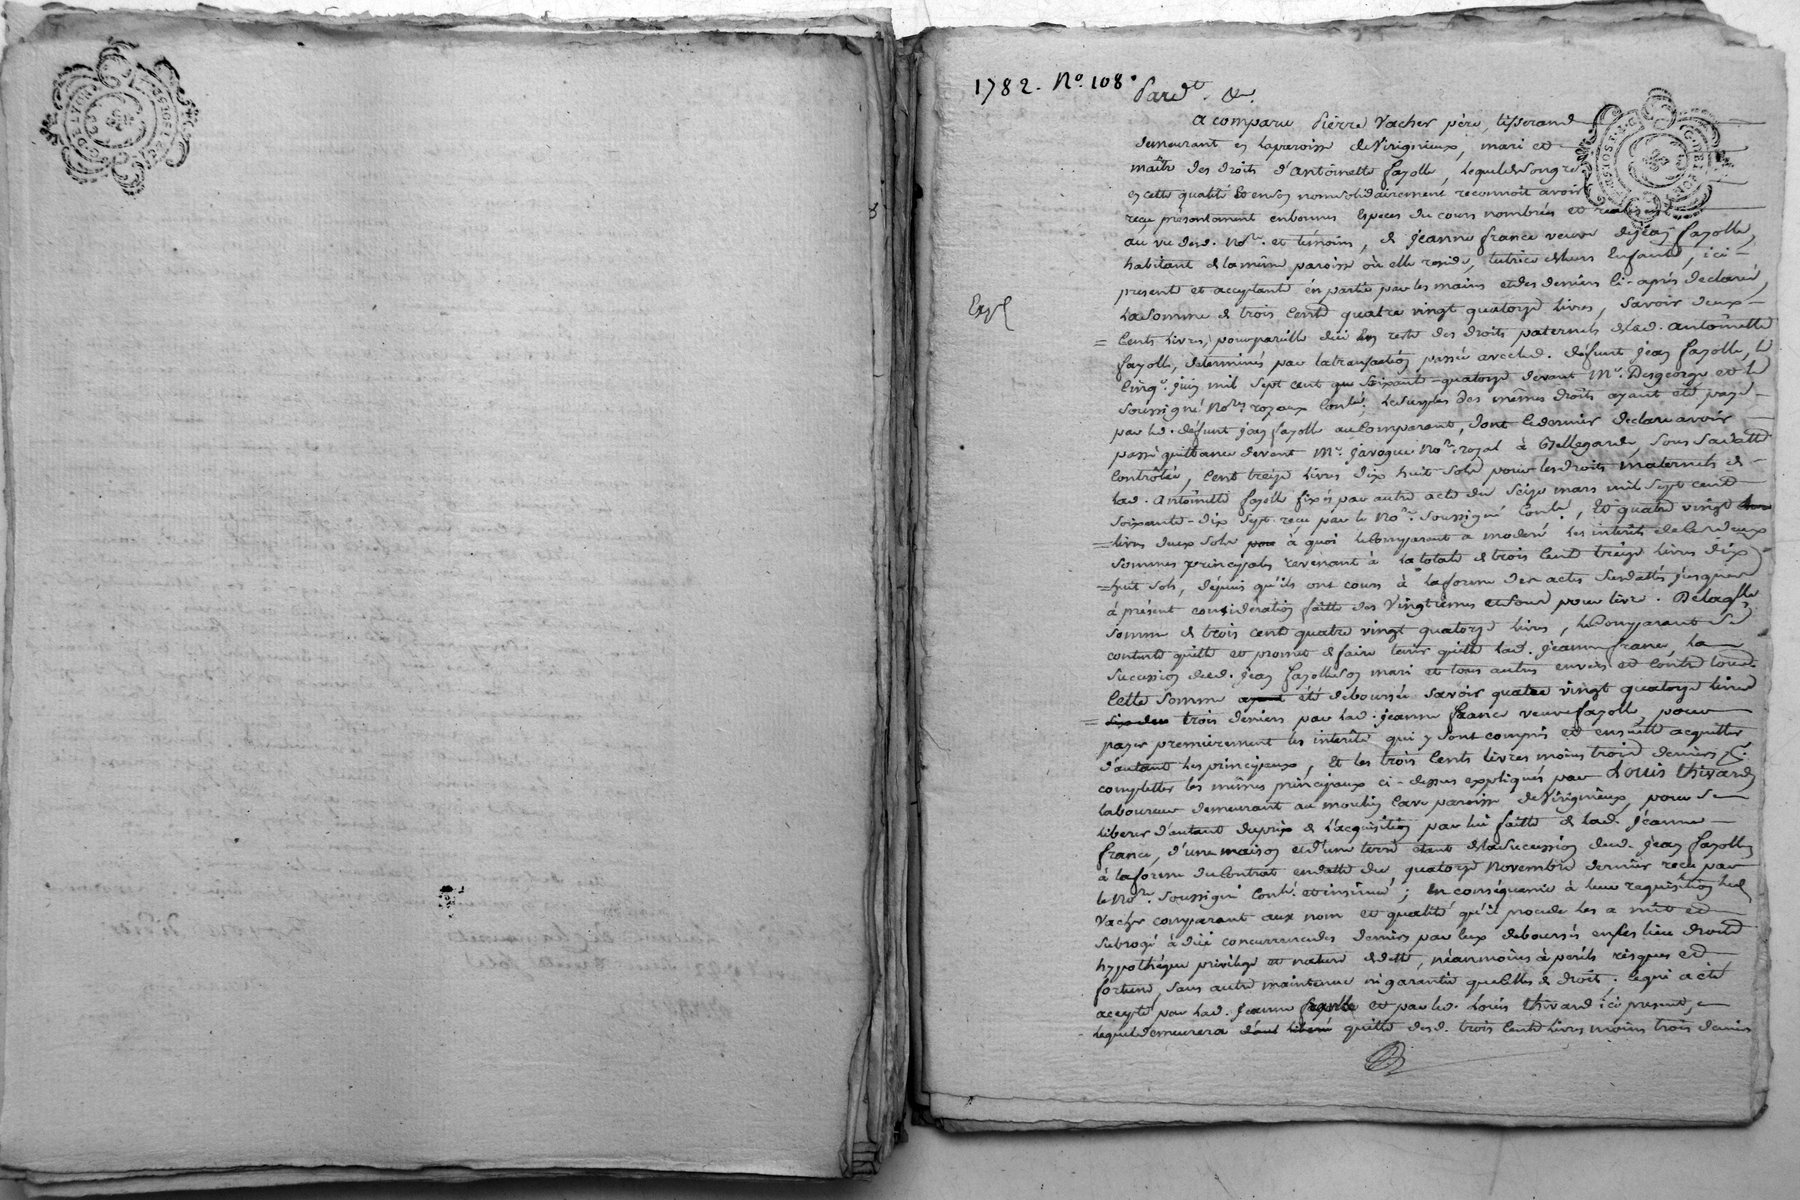 1782. No. 108.
Pard.t &.
a comparu Pierre Vacher père, tisserand
demeurant en la paroisse de Virignieux, mari et
maître des droits d'Antoinette fayolle, lequel de son gré
en cette qualité et en son nom solidairement reconnoit avoir
reçu présentement en bonnes Espèces du cours nombrées et realisées
au vu desd. No.re et témoins, de jeanne france veuve de jean fayolle,
habitant de la même paroisse où elle reside, tutrice de leurs Enfants, ici
presente et acceptante en partie par les mains et des deniers ci-après declarés,
la somme de trois Cents quatre vingt quatorze livres, Savoir deux
Expé
= Cents livres, pour pareille due en reste des droits paternels de lad. antoinette
fayolle, determinés par la transaction passée avec led. défunt jean fayolle, le
cinq. juin mil sept cent soixante-quatorze devant M.e Desgeorge et le
Soussigné No.res royaux Conlé; le surplus des mêmes droits ayant été payé
par led. défunt jean fayolle au Comparant, dont ce dernier declare avoir
passé quittance devant M.e javogue No.re royal à Bellegarde, sous sa datte
Contrôlée, Cent treize livres dix huit sols pour les droits maternels de
lad. antoinette fayolle fixés par autre acte du seize mars mil sept cent
soixante-dix sept reçu par le No.re Soussigné Conlé, et quatre vingt
= livres deux sols à quoi le Comparant a moderé les interêts de ces deux
sommes principales revenant à la totale de trois Cents treize livres dix
= huit sols, depuis qu'ils ont cours à la forme des actes susdattés jusques
à présent consideration faitte des Vingtièmes et sous pour livre. De laqlle
somme de trois cents quatre vingt quatorze livres, le Comparant se
contente quitte et promet de faire tenir quitte lad. jeanne france, la
succession dud. jean fayolle son mari et tous autres envers et contre tous.
Cette somme été deboursée savoir quatre vingt quatorze livres
= trois deniers par lad. jeanne france veuve fayolle, pour
payer premierement les interêts qui y sont compris et ensuitte acquitter
d'autant les principaux, Et les trois Cents livres moins trois deniers p.r
completter les mêmes principaux ci-dessus expliqués par Louis thivard
laboureur demeurant au moulin Cave paroisse de Virignieux, pour se
liberer d'autant du prix de l'acquisition par lui faitte de lad. jeanne
france, d'une maison et d'une terre etant de la succession dud. jean fayolle
à la forme du Contrat en datte du quatorze Novembre dernier reçu par
le No.re Soussigné Conlé et insinué; En conséquence à leur requisition led.
Vacher comparant aux nom et qualité qu'il procede les a mis et
subrogé à dûe concurrence des deniers par eux deboursés en ses lieu droits
hypothèque privilege et nature de dette, néanmoins à perils risques et
fortune, sans autre maintenue ni garantie que celles de droit; ce qui a été
accepté par lad. jeanne fayolle et par led. Louis thivard ici present,
lequel demeurera quitte desd. trois cents livres moins trois deniers